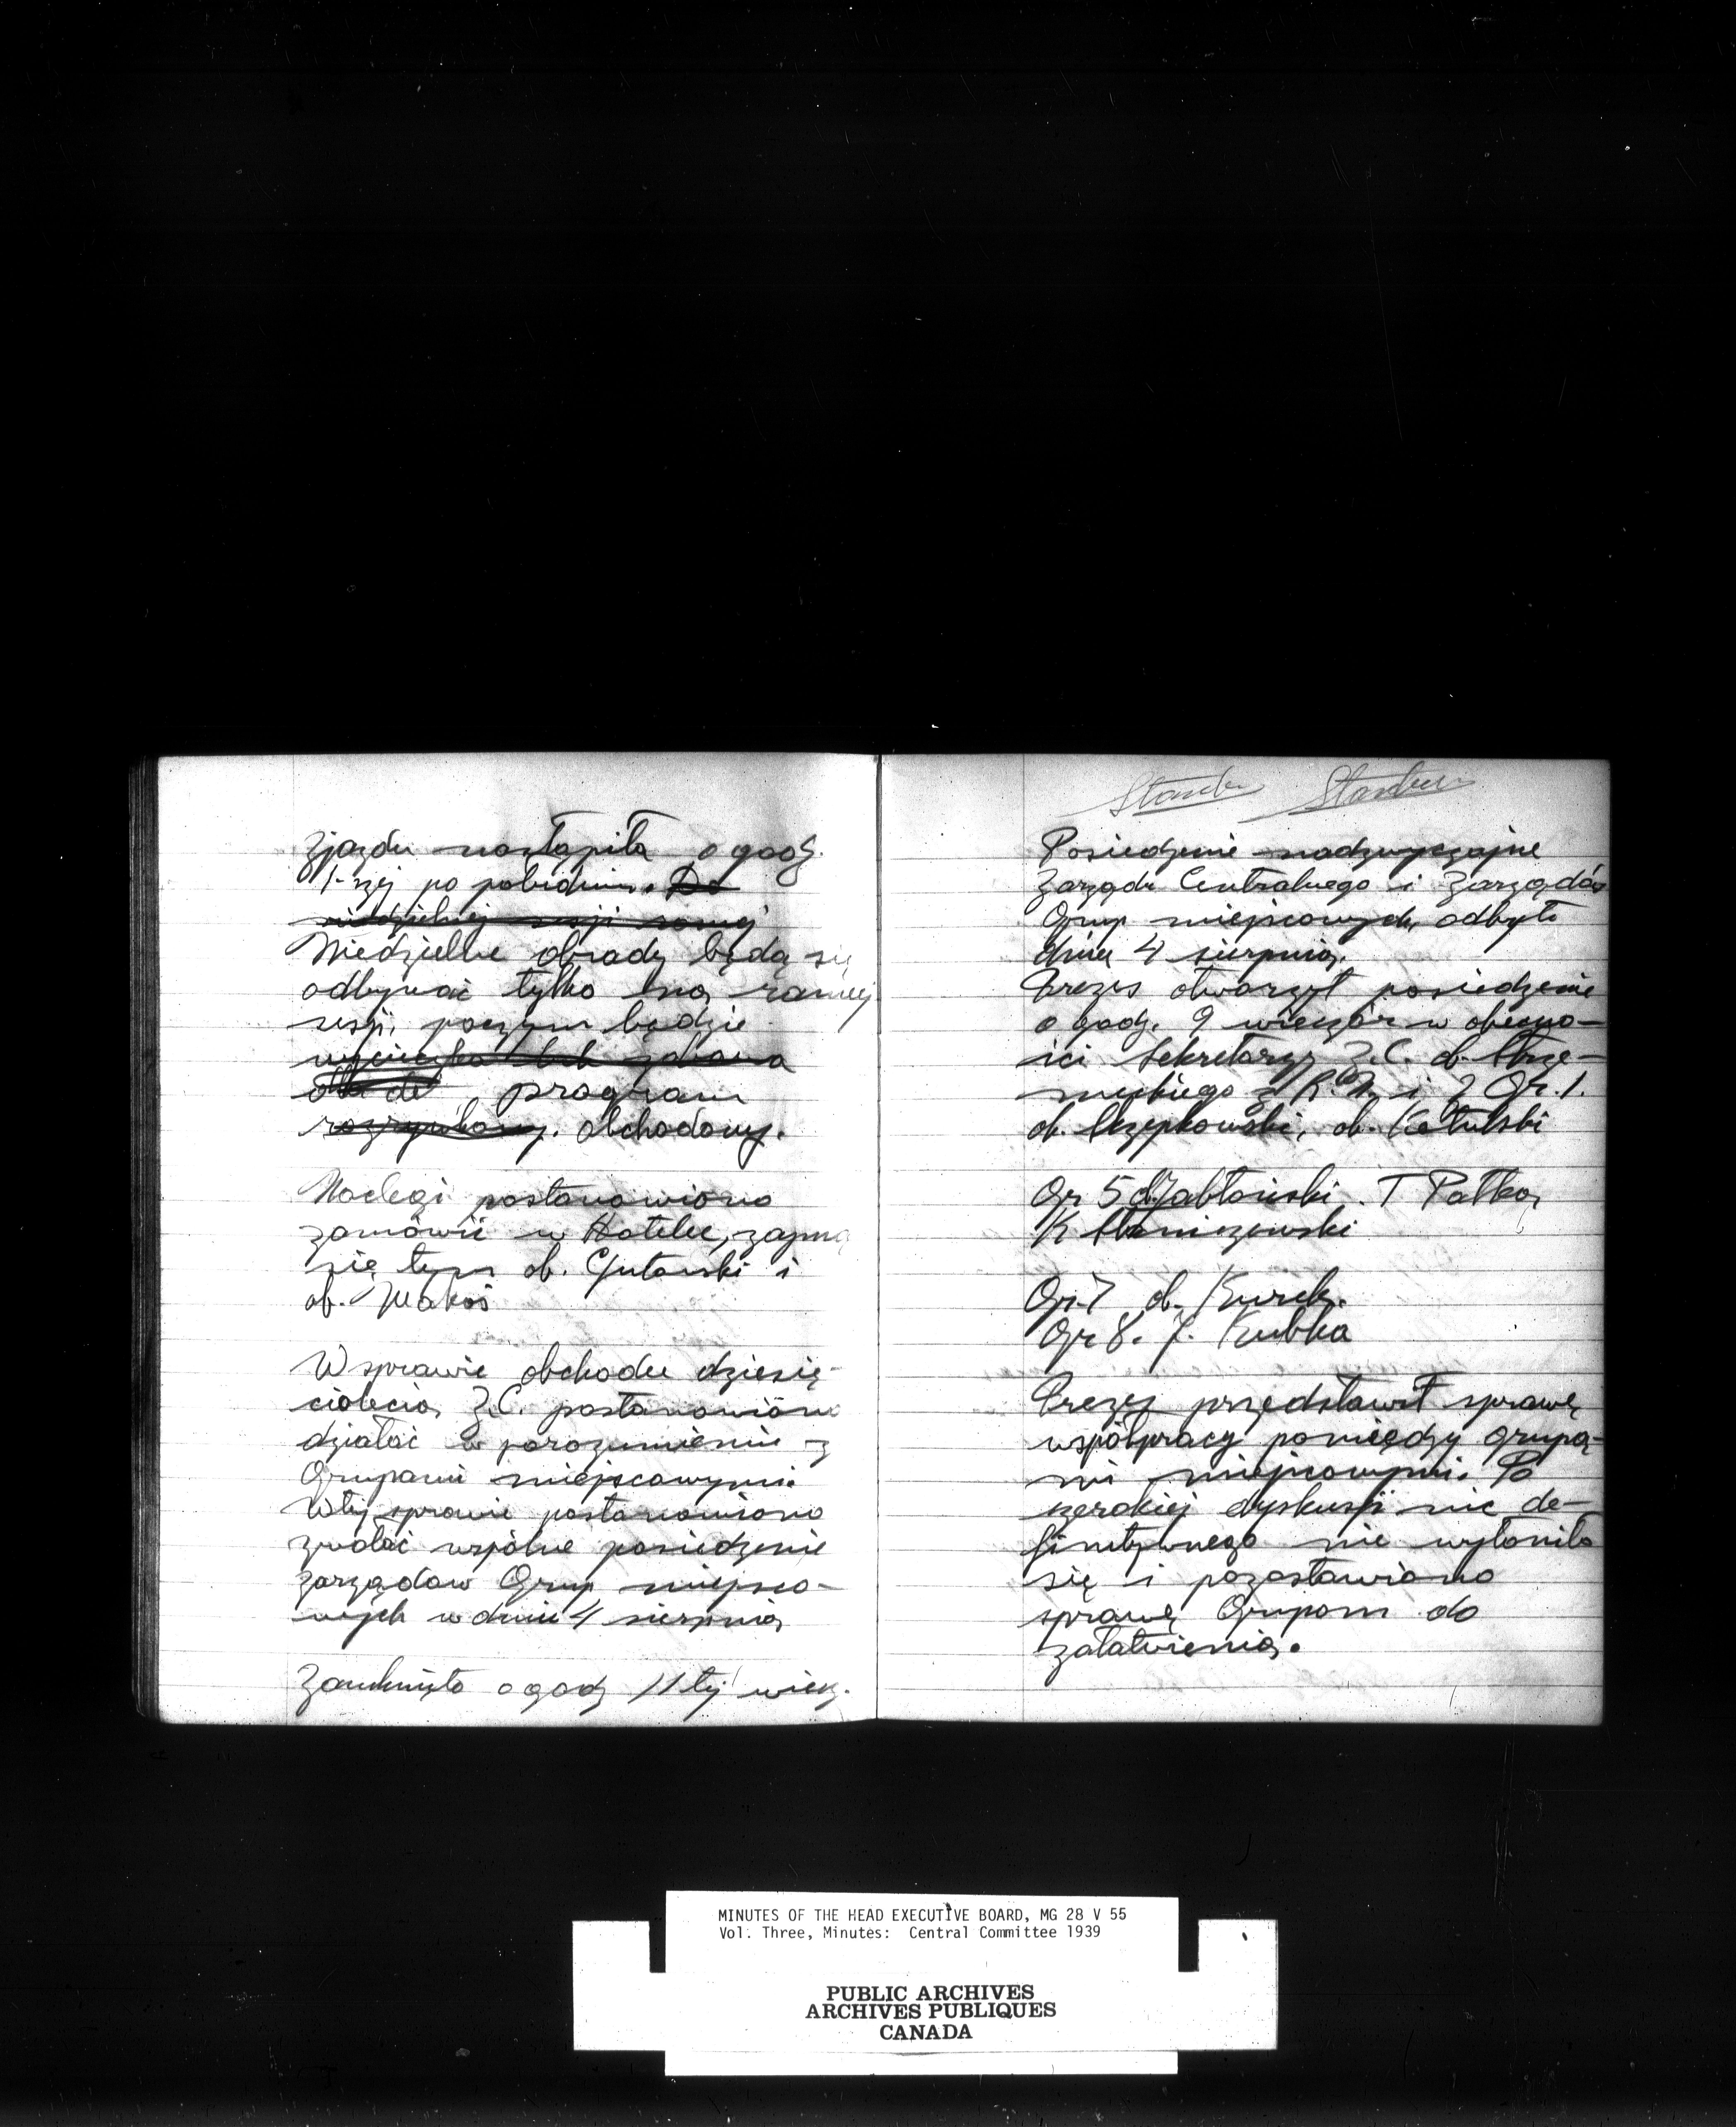 Zjazdu nastąpiła o godz.
1-szej po południu. Do
niedzielnej sesji rannej
Niedzielne obrady będą się
odbywać tylko na rannej
sesji, poczym będzie
wycieczka lub zabawa
dla del program
rozrywkowy. obchodowy.
Noclegi postanowiono
zamówić w Hotelu, zajmą
się tym ob. Gutowski i
ob. Makoś
W sprawie obchodu dziesię-
ciolecia Z.C. postanowiono
działać w porozumieniu z
Grupami miejscowymi
W tej sprawie postanowiono
zwołać wspólne posiedzenie
zarządow Grup miejsco-
wych w dniu 4 sierpnia
Zamknięto o godz 11tej wiecz.
Posiedzenie nadzwyczajne
Zarządu Centralnego i Zarządów
Grup miejscowych, odbyto
dnia 4 sierpnia.
Prezes otworzył posiedzenie
o godz. 9 wieczór w obecno-
ści Sekretarza Z.C. ob.
z R.N. i z Gr. 1.
ob.
Gr 5 ob. Jabłoński. T Patka,
K
Gr. 7 ob.
Gr 8. J. Kubka
Prezes przedstawił sprawę
współpracy pomiędzy grupa-
mi miejscowymi. Po
szerokiej dyskusji nic de-
finitywnego nie wyłoniło
się i pozostawiono
sprawę Grupom do
załatwienia.
MINUTES OF THE HEAD EXECUTIVE BOARD, MG 28 V 55
Vol. Three, Minutes: Central Committee 1939
PUBLIC ARCHIVES
ARCHIVES PUBLIQUES
CANADA